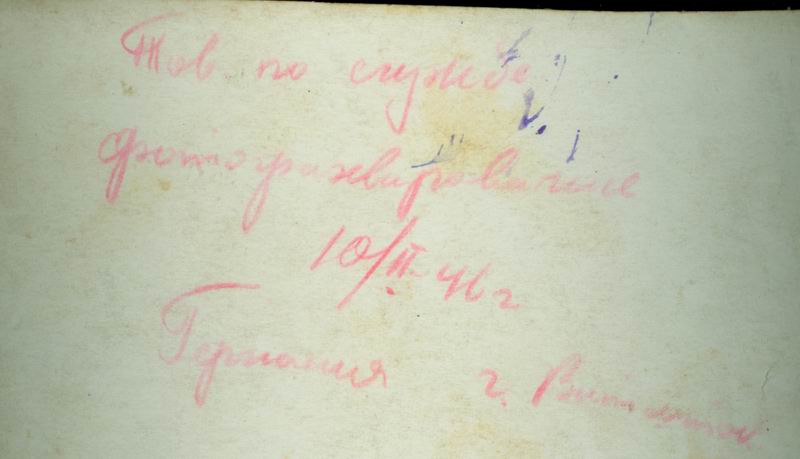 Тов по службе
фотографированые
10/II-46 г
Германия г.